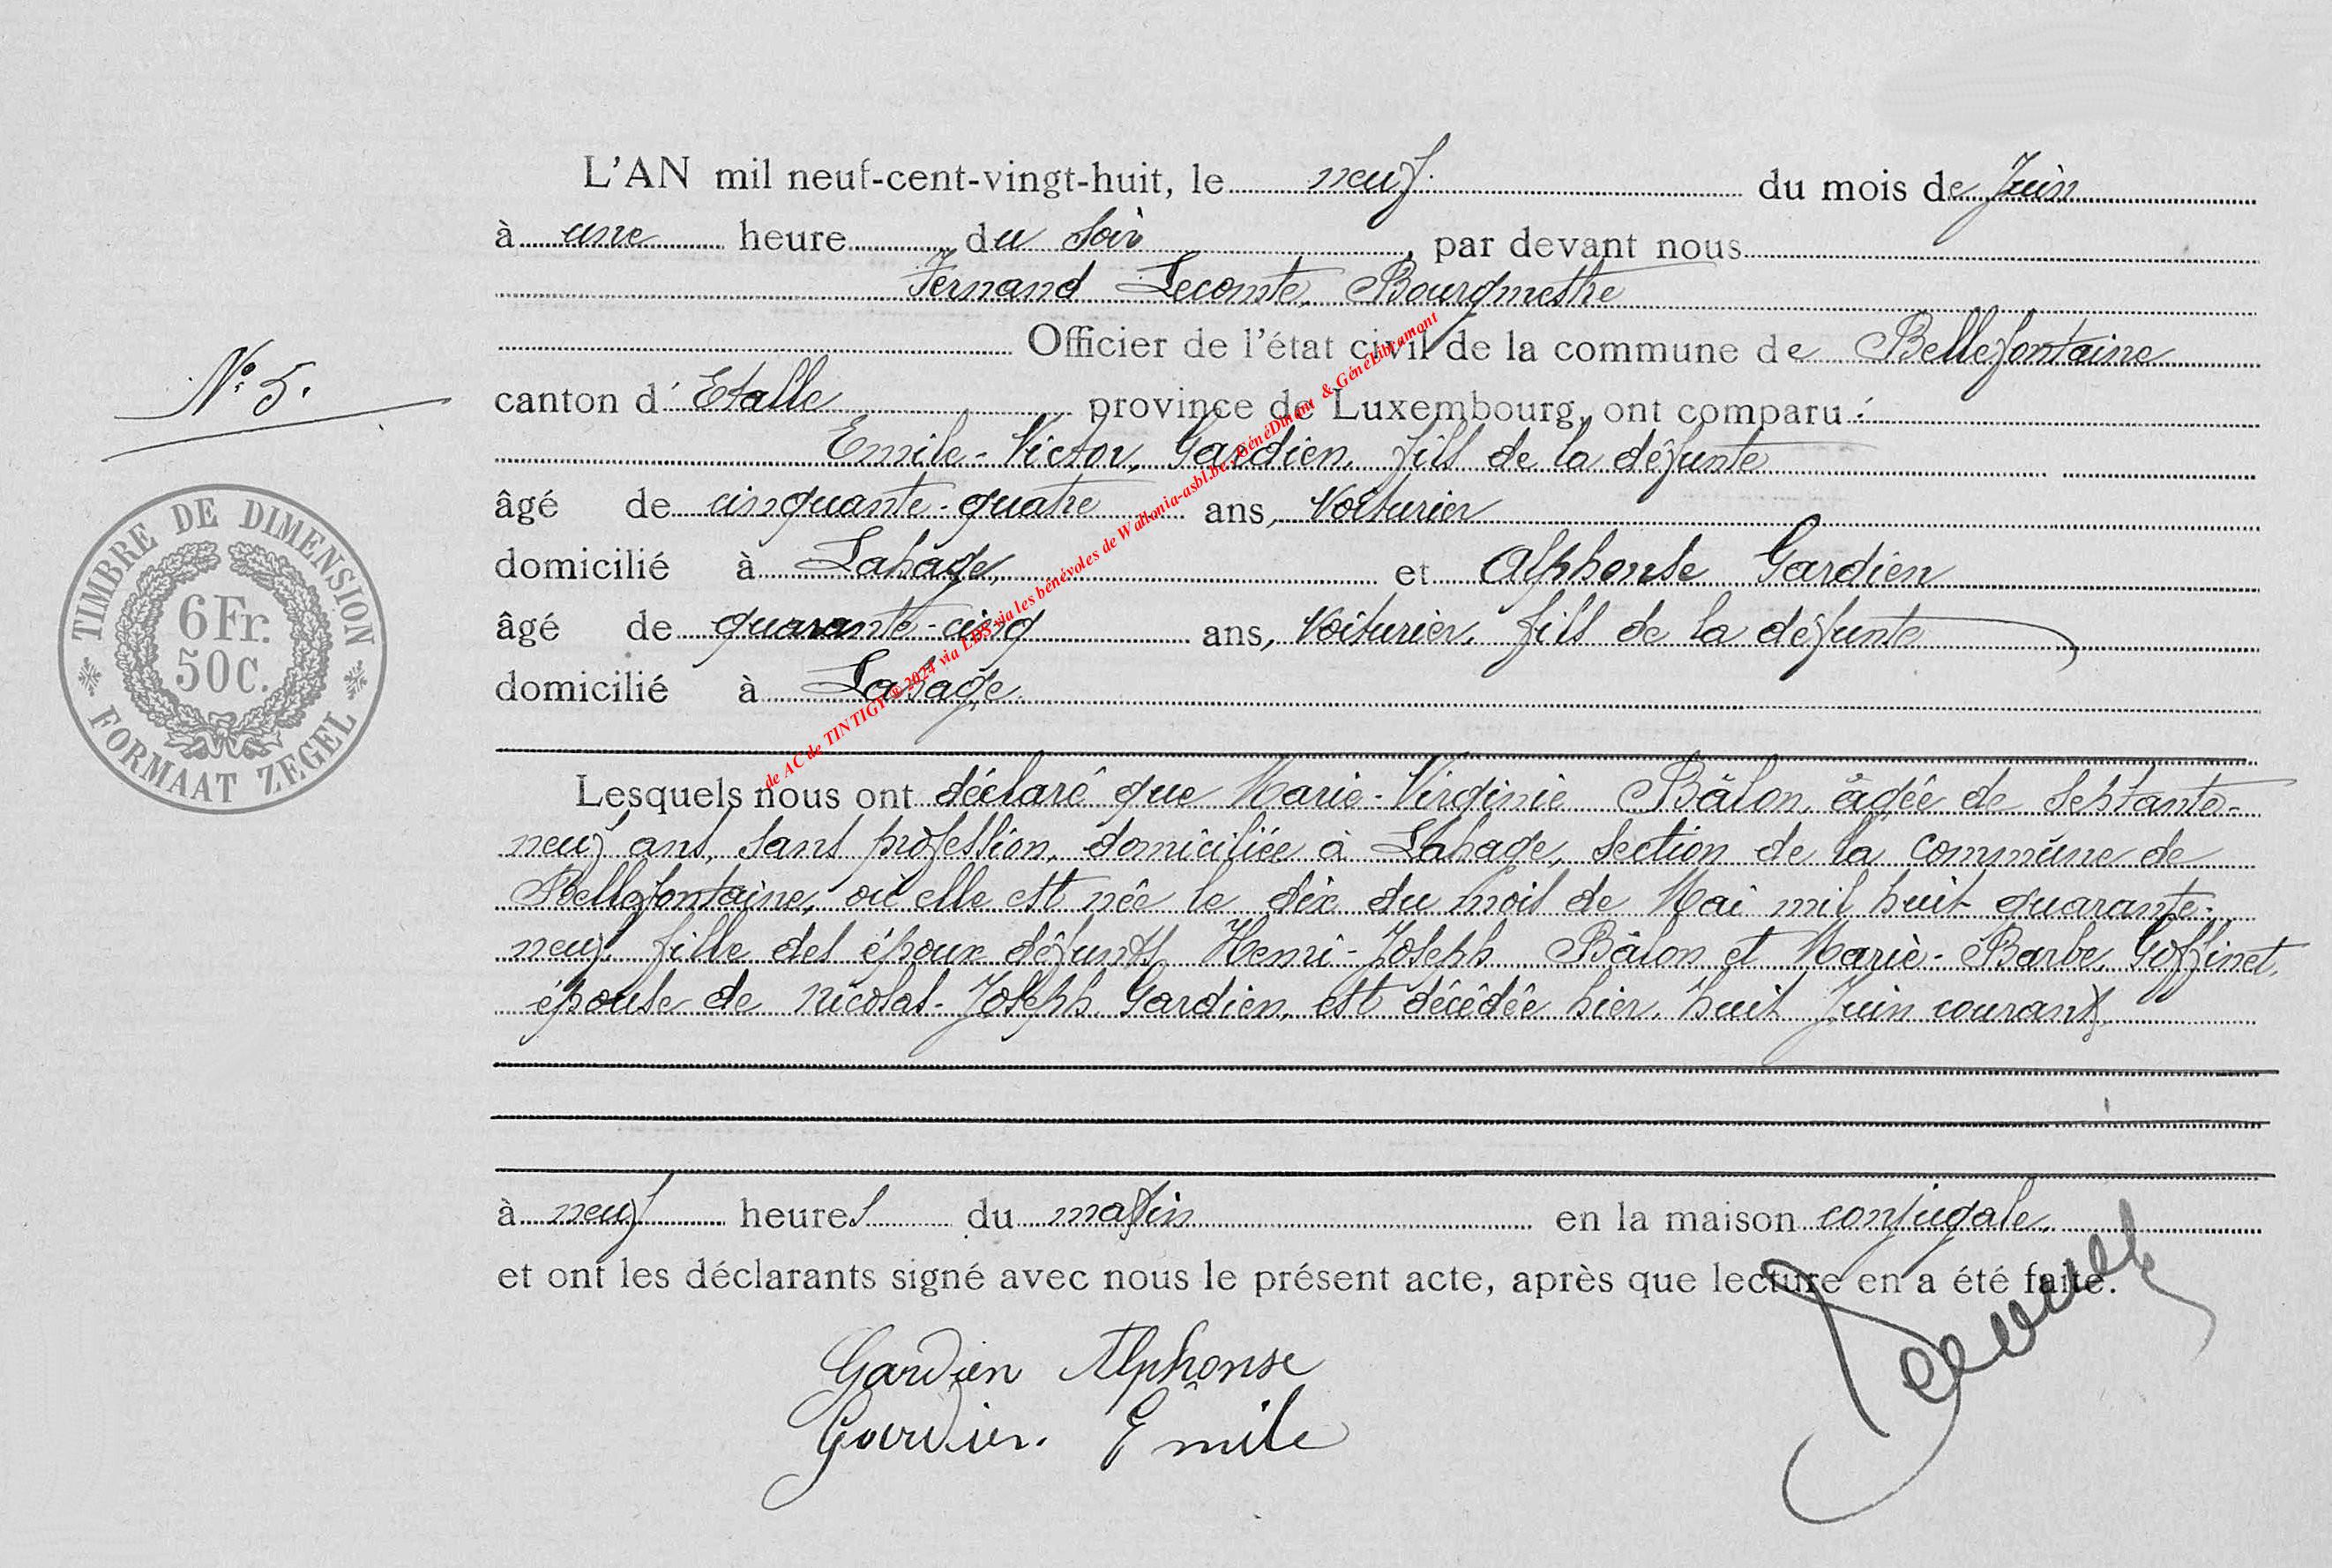 L'AN mil neuf-cent-vingt-huit, le neuf. du mois de Juin
à une heure du soir, par devant nous
Fernand Lecomte, Bourgmestre
Officier de l'état civil de la commune de Bellefontaine
N° 5.
canton d' Etalle province de Luxembourg, ont comparu :
Emile-Victor, Gardien, fils de la défunte
âgé de cinquante-quatre ans, Voiturier
domicilié à Lahage, et Alphonse Gardien
âgé de quarante-cinq ans, Voiturier, fils de la défunte
domicilié à Lahage.
TIMBRE DE DIMENSION
6 Fr.
50 C.
FORMAAT ZEGEL
de AC de TINTIGY © 2024 via LDS via les bénévoles de Wallonia-asbl.be, GénéDinant & GénéLibramont
Lesquels nous ont déclaré que Marie-Virginie Bâlon, âgée de septante-
neuf ans, sans profession, domiciliée à Lahage, section de la commune de
Bellefontaine, où elle est née le dix du mois de Mai mil huit quarante-
neuf, fille des époux défunts Henri-Joseph Bâlon et Marie-Barbe, Goffinet,
épouse de Nicolas-Joseph Gardien, est décédée hier, huit Juin courant,
à neuf heures du matin en la maison conjugale,
et ont les déclarants signé avec nous le présent acte, après que lecture en a été faite.
Gardien Alphonse
Gardien. Emile